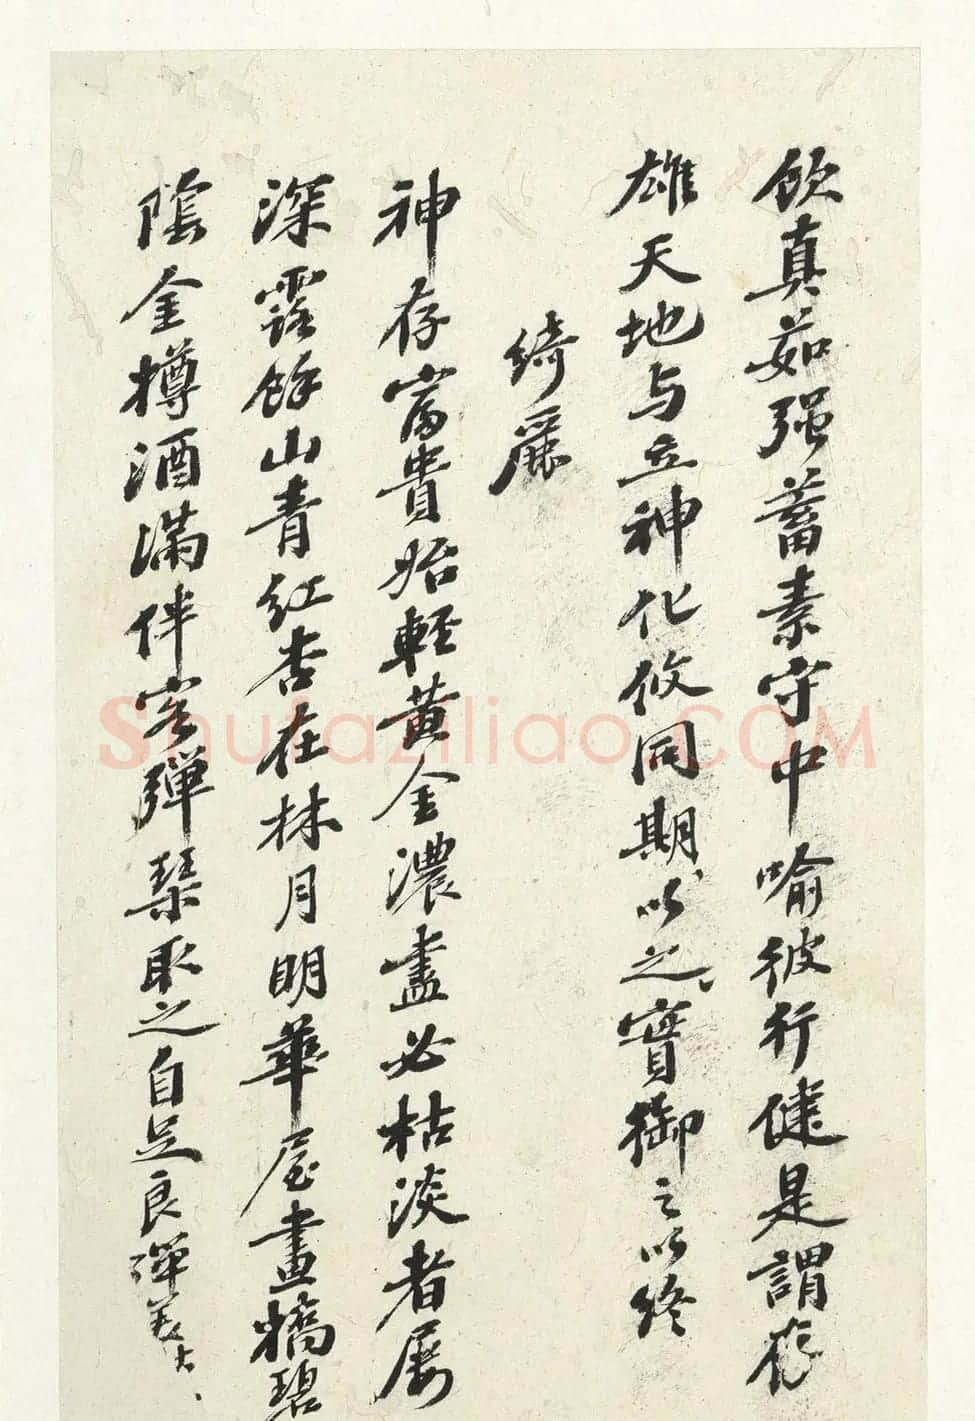 飲真茹强蓄素守中喻彼行健是謂存
雄天地与立神化攸同期以之、實御之以终
綺麗
神存富貴始輕黄金濃盡必枯淡者屡
深露餘山青红杏在林月明華屋畫橋碧
陰金樽酒滿伴客彈琴取之自足良殫美
Shufaziliao.COM